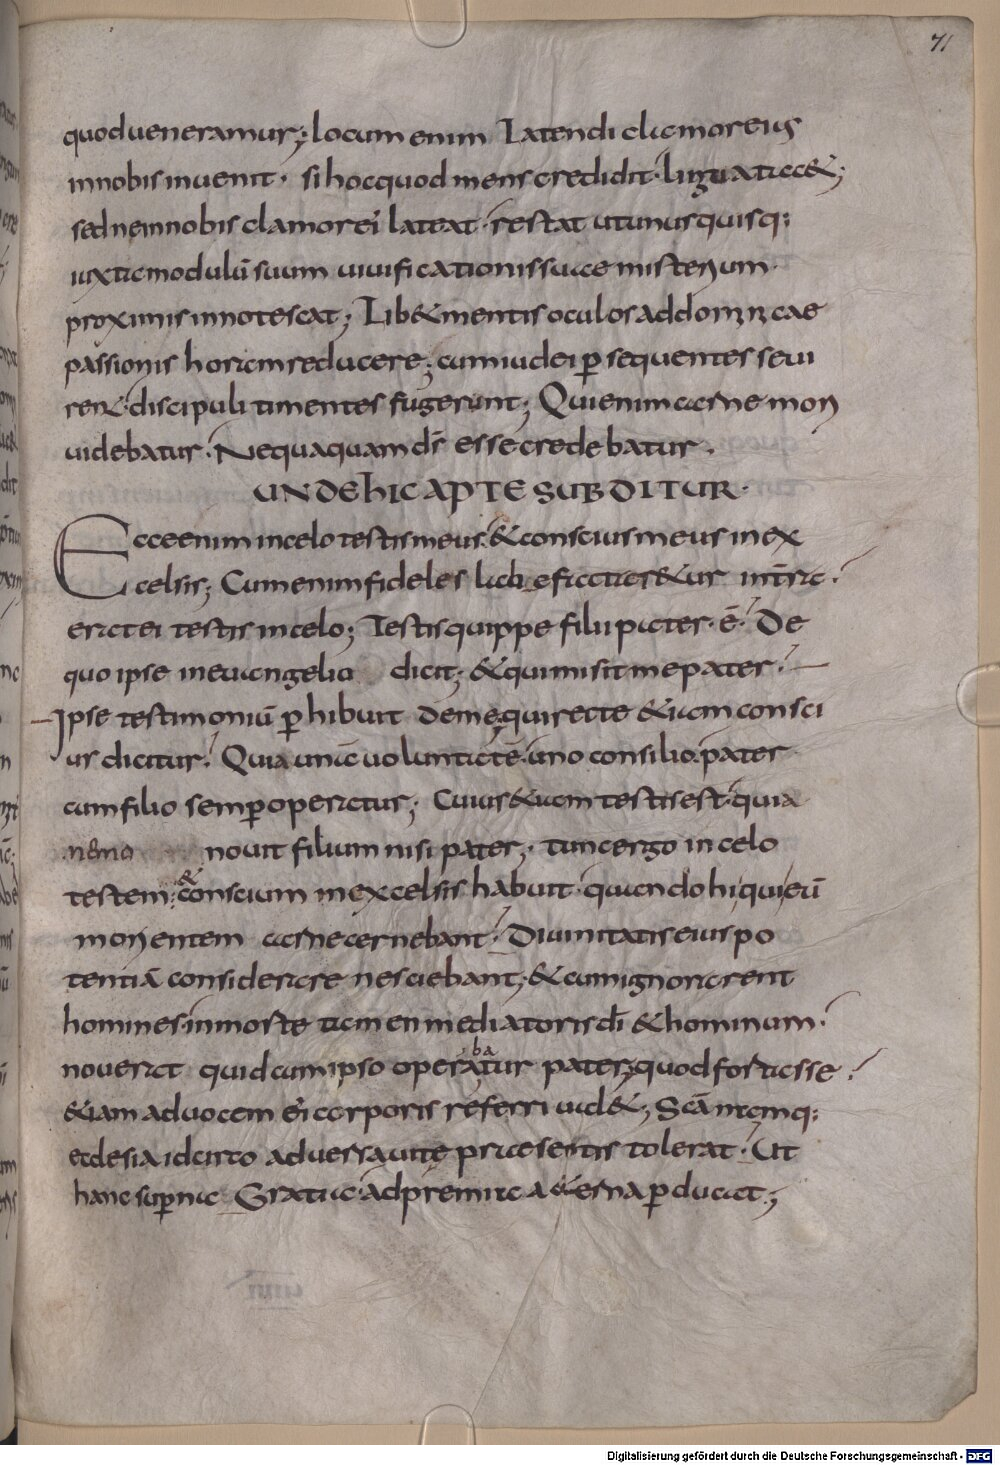 71
quod veneramur; locum enim Latendi clamor eius
in nobis invenit. si hoc quod mens credidit. lingua tac&;
sed ne in nobis clamor ei lateat. restat ut unusquisq:
iuxta modulū suum vivificationis suae misterium
proximis innotescat; Lib& mentis oculos ad dominicae
passionis horam reducere; cum iudei p sequentes sevi
ren&. discipuli timentes fugerunt; Qui enim carne mori
videbatur. Nequaquam dś esse credebatur.
UNDE hIC APTE SUBDITUR.
Ecce enim in celo testis meus. & conscius meus in ex
celsis; Cum enim fideles labefactar&ur in tr̄a.
erat ei testis in celo; Testis quippe filii pater. ē. De
quo ipse in evangelio dicit; & qui misit me pater.
Ipse testimoniū p hibuit de me; qui recte &iam consci
us dicitur. Quia una voluntate. uno consilio. pater
cum filio semp operatur; Cuius &iam testis est. quia
nemo novit filium nisi pater; tunc ergo in celo
testem. & conscium in excelsis habuit. quando hi qui eū
morientem carne cernebant. Divinitatis eius po
tentiā considerare nesciebant; & cum ignorarent
homines. in morte tamen mediatoris dī & hominum.
noverat quid cum ipso operabatur pater; quod fortasse
&iam ad vocem ei corporis referri vid&; Scā namq:
ecclesia idcirco adversa vite praesentis tolerat. Ut
hanc supna Gratia. ad premia aeterna p ducat;
Digitalisierung gefördert durch die Deutsche Forschungsgemeinschaft - DFG